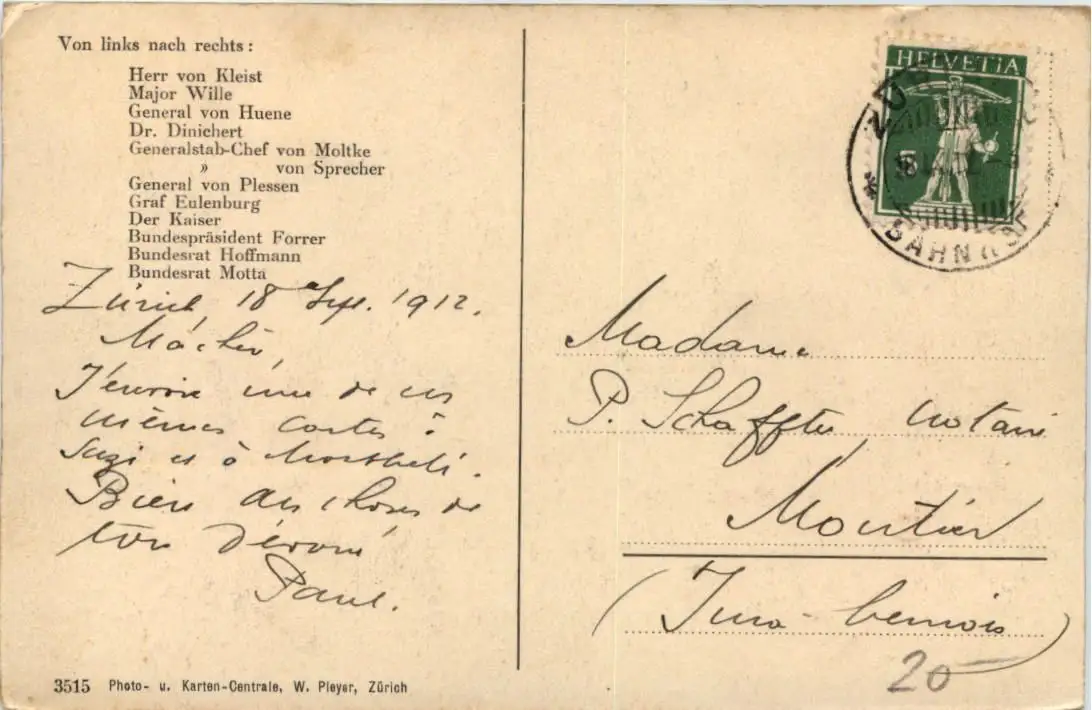 Von links nach rechts:
Herr von Kleist
Major Wille
General von Huene
Dr. Dinichert
Generalstab-Chef von Moltke
» von Sprecher
General von Plessen
Graf Eulenburg
Der Kaiser
Bundespräsident Forrer
Bundesrat Hoffmann
Bundesrat Motta
Zürich, 18 Sept. 1912.
Ma chère,
J'envoie une de ces
mêmes cartes à
Suzi et à
Bien des choses de
ton dévoué
Paul.
3515 Photo- u. Karten-Centrale, W. Pleyer, Zürich
HELVETIA
5
BAHNHOF
Madame
P. Schaffter, notaire
Moutier
(Jura-bernois)
20